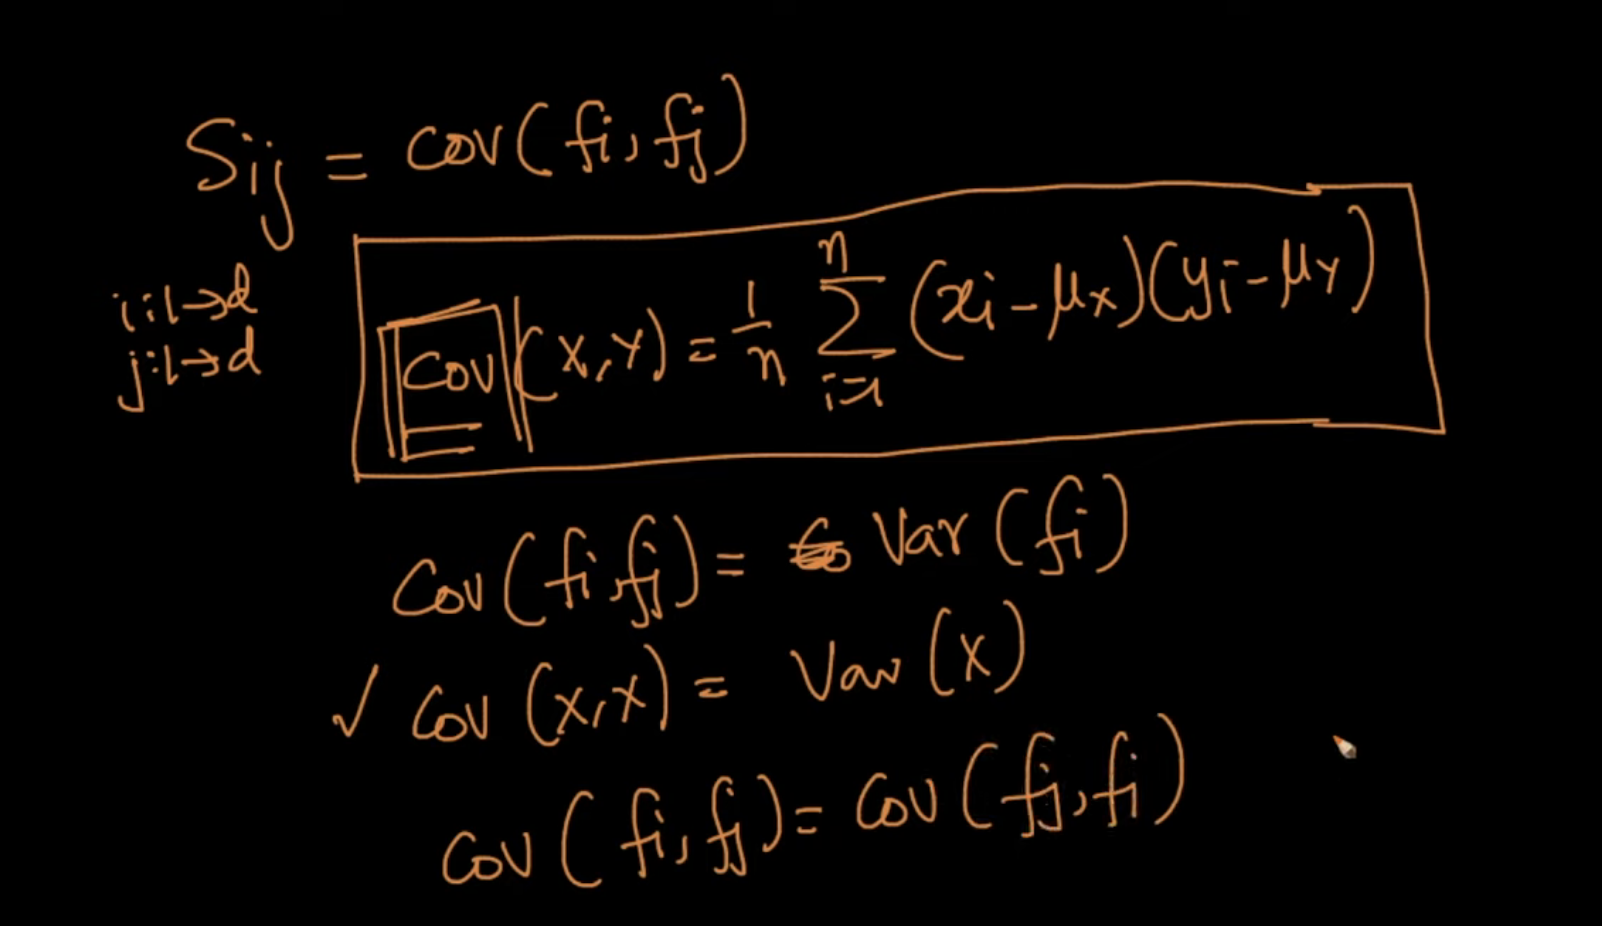 Sij = cov(fi, fj)
i:1→d
j:1→d
Cov(X,Y) = 1/n Σ_{i=1}^{n} (xi - μx)(yi - μY)
Cov(fi, fj) = Var(fi)
✓ Cov(x,x) = Var(x)
Cov(fi, fj) = Cov(fj, fi)